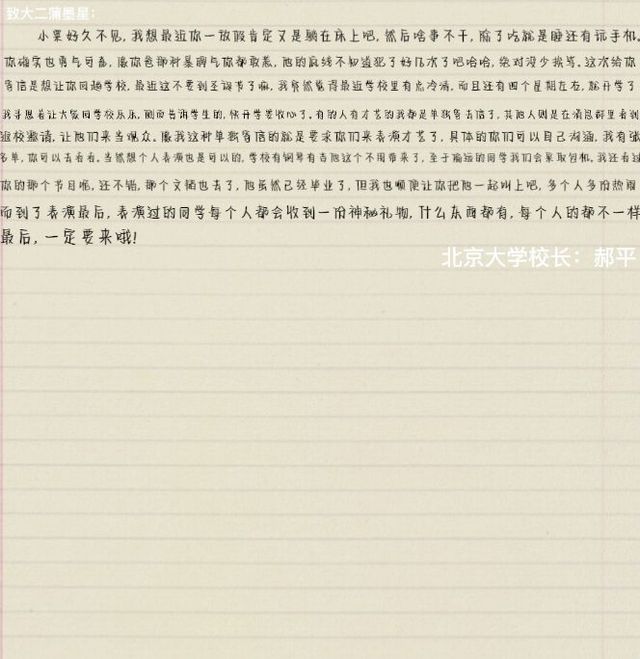 致大二蒲墨星：
小栗好久不见，我想最近你一放假肯定又是躺在床上吧，然后啥事不干，除了吃就是睡还有玩手机。
你确实也勇气可嘉，廉你爸那种暴脾气你都敢惹，他的底线不知道犯了好几次了吧哈哈，绝对没少挨骂。这次给你
寄信是想让你回趟学校，最近这不要到圣诞节了嘛，我突然觉得最近学校里有点冷清，而且还有四个星期左右，就开学了
我寻思着让大家回学校乐乐，顺便告诉学生的，快开学要收心了。有的人有才艺的我都是单独寄去信了，其他人则是在消息群里看到
返校邀请，让他们来当观众。廉我这种单独寄信的就是要求你们来表演才艺了，具体的你们可以自己沟通，我有张
多单，你可以去看看。当然想个人表演也是可以的，学校有钢琴有吉他这个不用带来了，至于偏远的同学我们会采取包机，我还看过
你的那个节目呢，还不错，那个文杨也去了，他虽然已经毕业了，但我也顺便让你把他一起叫上吧，多个人多份热闹
而到了表演最后，表演过的同学每个人都会收到一份神秘礼物，什么东西都有，每个人的都不一样
最后，一定要来哦！
北京大学校长：郝平